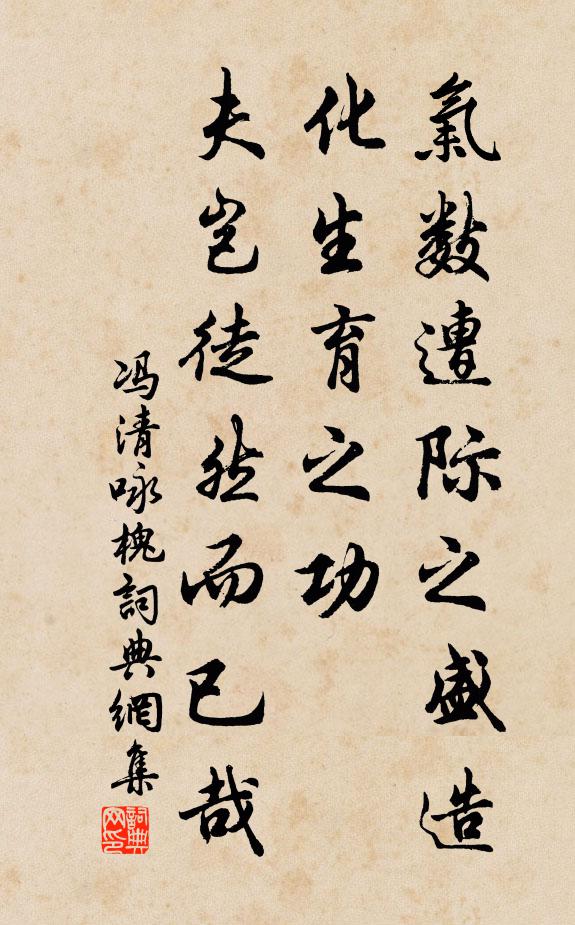 氣數遭际之盛造
化生育之功
夫岂徒然而已哉
冯清咏槐詞典網集
詞典网印